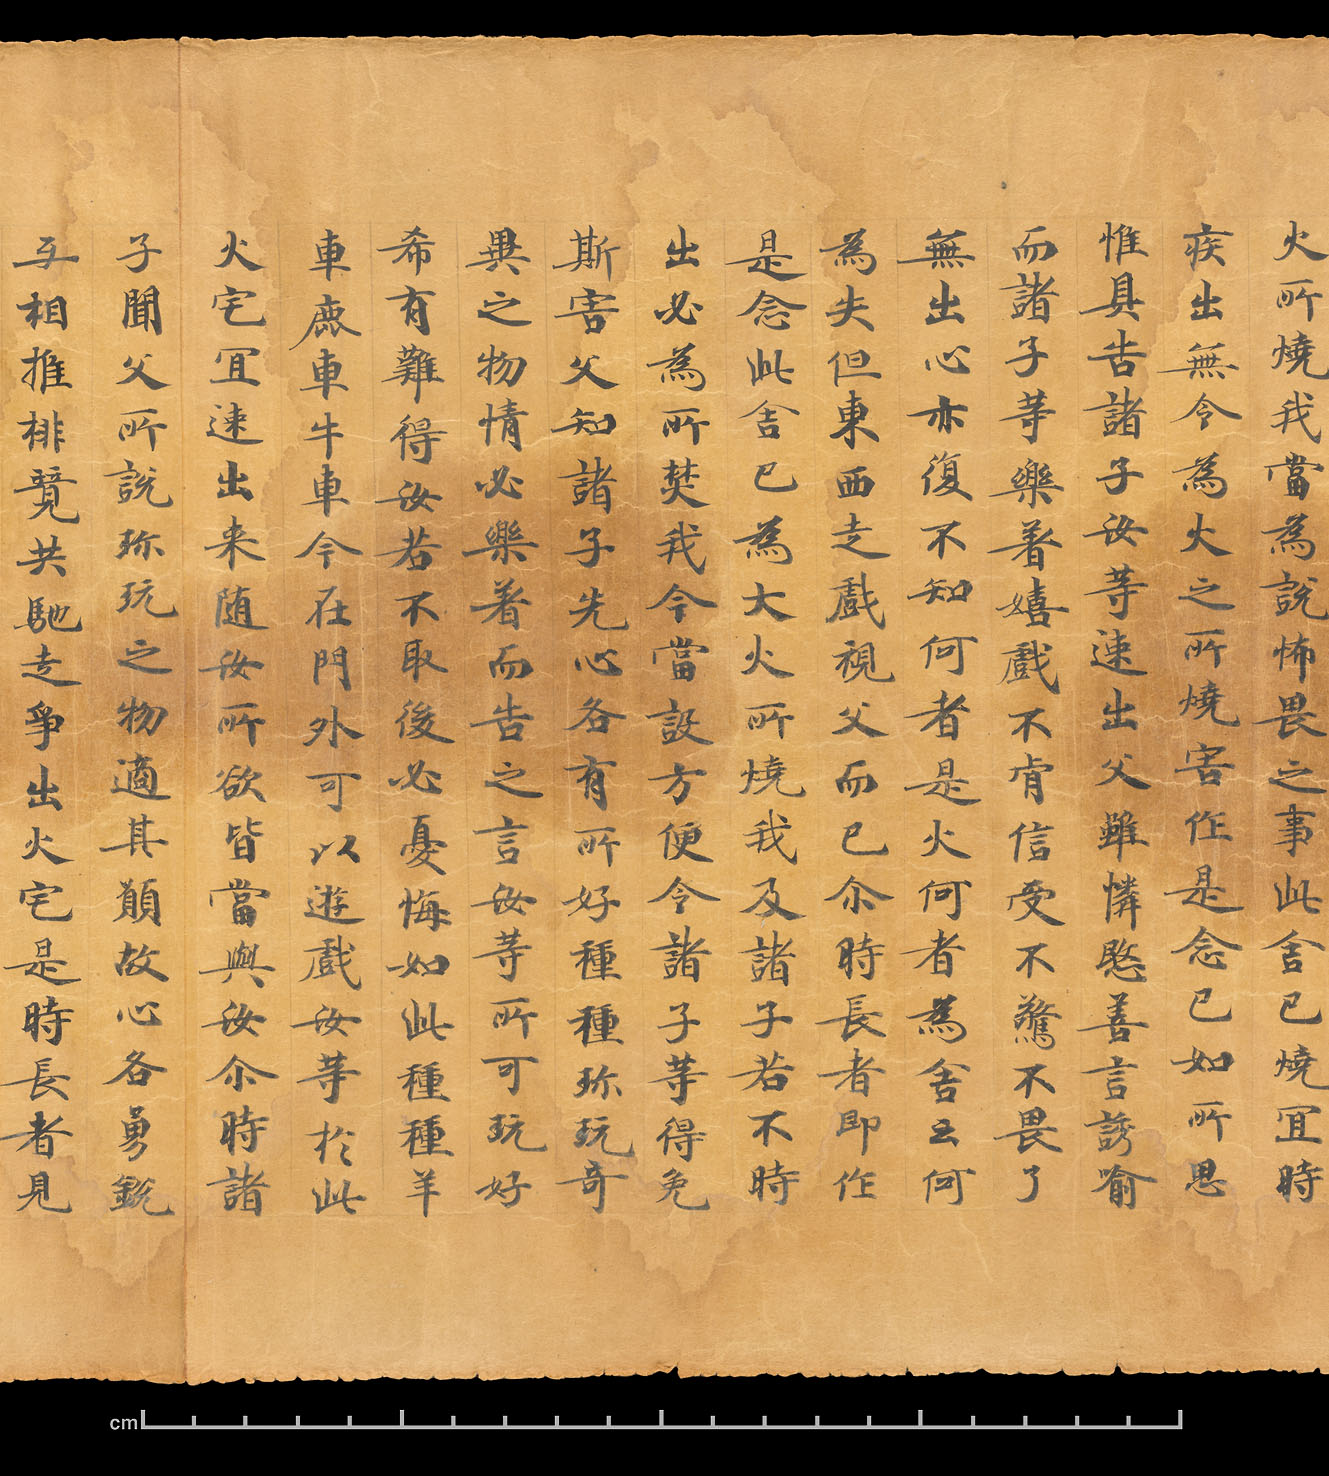 火所燒我當為說怖畏之事此舍已燒宜時
疾出無令為火之所燒害作是念已如所思
惟具告諸子汝等速出父雖憐愍善言誘喻
而諸子等樂著嬉戲不肯信受不驚不畏了
無出心亦復不知何者是火何者為舍云何
為失但東西走戲視父而已尒時長者即作
是念此舍已為大火所燒我及諸子若不時
出必為所焚我今當設方便令諸子等得免
斯害父知諸子先心各有所好種種珎玩奇
異之物情必樂著而告之言汝等所可玩好
希有難得汝若不取後必憂悔如此種種羊
車鹿車牛車今在門外可以遊戲汝等於此
火宅冝速出来随汝所欲皆當與汝尒時諸
子聞父所說珎玩之物適其願故心各勇銳
互相推排競共馳走爭出火宅是時長者見
cm